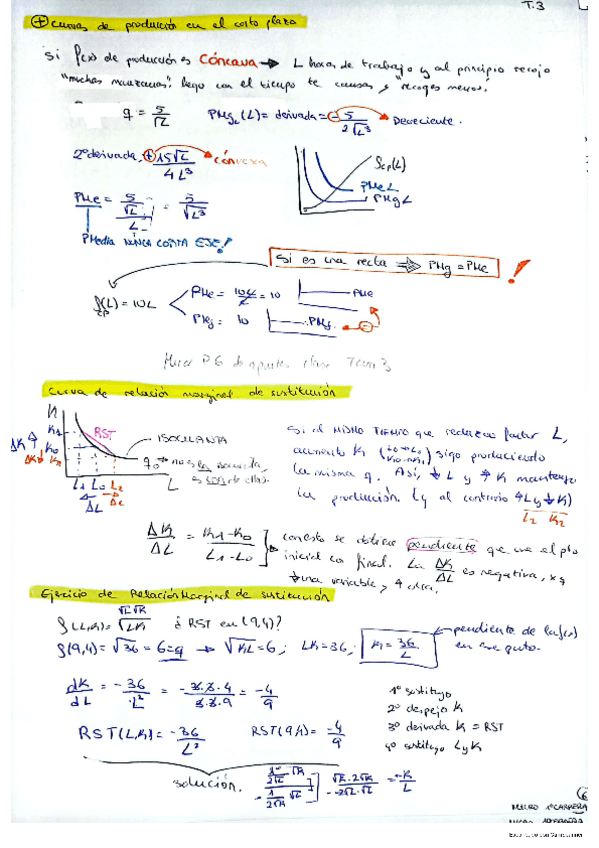 T.3
⊕ curvas de producción en el corto plazo
si f(x) de producción es CÓNCAVA → L horas de trabajo y al principio recojo
"muchas manzanas", luego con el tiempo te cansas y recoges menos.
q = 5/√L PMgL(L) = derivada = -5/2√L³ Decreciente.
2º derivada, +15√L/4L³ convexa
fcp(L)
PMeL
PMgL
PMe = 5/√L / L = 5/√L³
PMedia NUNCA CORTA EJE!
Si es una recta ⇒ PMg = PMe !
f(L) = 10L
cp
PMe = 10L/L = 10
PMe
PMg = 10
PMg
Mirar PG de apuntes clase Tema 3
Curva de relación marginal de sustitución
K
RST
ISOCUANTA
ΔK K1 K0 K2
L1 L0 L2 L
ΔL
Si al MISMO TIEMPO que reduzco factor L,
aumento K sigo produciendo
la misma q. Así, ↓L y ↑K mantengo
la producción (y al contrario ↑L y ↓K)
L2 K2
ΔK/ΔL = K1-K0/L1-L0
con esto se obtiene pendiente que une el pto
inicial con final. La ΔK/ΔL es negativa, xq
↓una variable, ↑ otra.
Ejercicio de Relación Marginal de sustitución
√L√K
f(L,K) = √LK ¿RST en (9,4)?
f(9,4) = √36 = 6 = q → √KL = 6; LK = 36; K = 36/L
pendiente de la f(x)
en ese punto.
dK/dL = -36/L² = -4/9
RST(L,K) = -36/L² RST(9,4) = -4/9
1º sustituyo
2º despejo K
3º derivada K = RST
4º sustituyo L y K
solución.
√K·2√K/-2√L·√L = -K/L
6
MICRO 1ºCARRERA